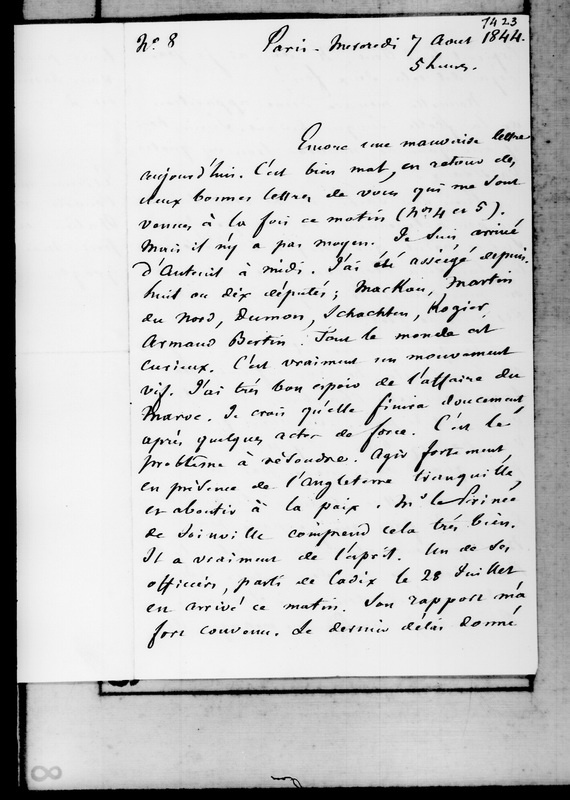 1423
N° 8 Paris - Mercredi 7 Aout 1844.
5 heures.
Encore une mauvaise lettre
aujourd'hui. C'est bien mal, en retour des
deux bonnes lettres de vous qui me sont
venues à la fois ce matin (Nos 4 et 5).
Mais il n'y a pas moyen. Je suis arrivé
d'Auteuil à midi. J'ai été assiégé depuis.
huit ou dix députés ; Mackau, Martin
du Nord, Dumon, Schachten, Rogier,
Armand Bertin. Tout le monde est
curieux. C'est vraiment un mouvement
vif. J'ai très bon espoir de l'affaire du
Maroc. Je crois qu'elle finira doucement
après quelques actes de force. C'est le
problème à résoudre. agir fortement,
en présence de l'Angleterre tranquille,
et aboutir à la paix. Mr le Prince
de Joinville comprend cela très bien.
Il a vraiment de l'esprit. Un de ses
officiers, parti de Cadix le 28 Juillet
est arrivé ce matin. Son rapport m'a
fort convenu. Le dernier délai donné
8